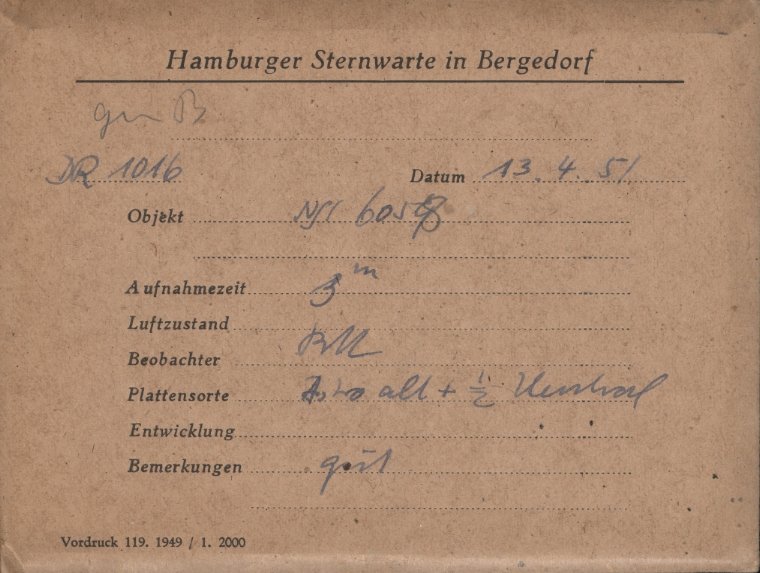 Hamburger Sternwarte in Bergedorf
DR 1016 Datum 13. 4. 51
Objekt
Aufnahmezeit 3 m
Luftzustand
Beobachter
Plattensorte Astro alt + 1/2
Entwicklung
Bemerkungen gut
Vordruck 119. 1949 / 1. 2000